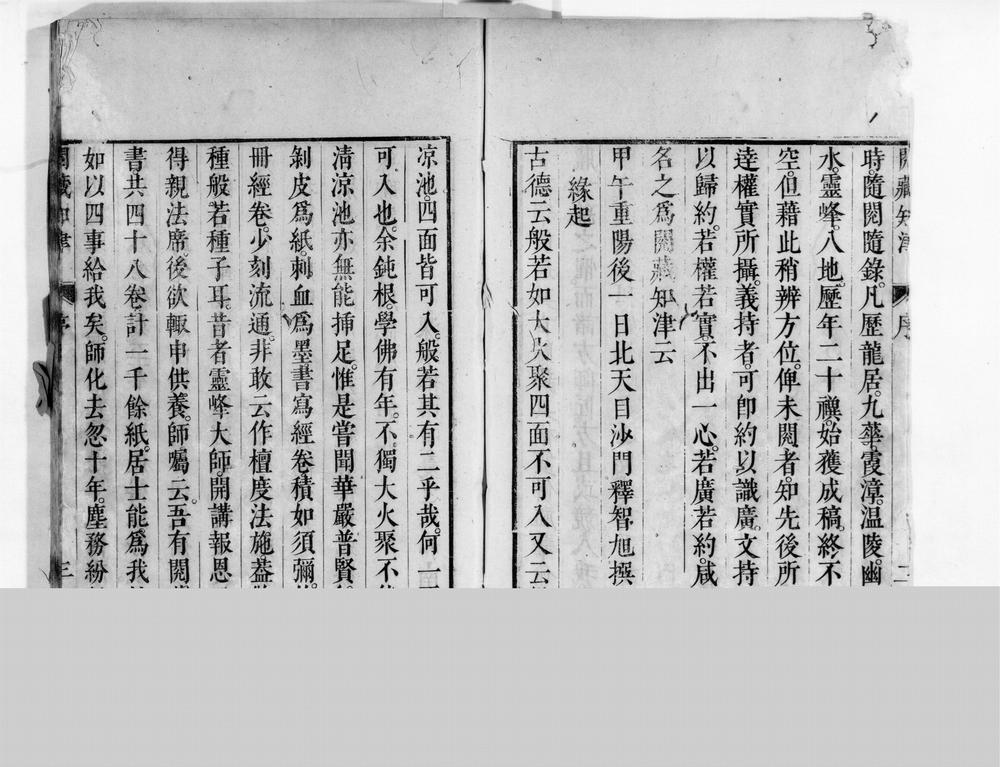 閱藏知津 序 二
時隨閱隨錄。凡歷龍居。九華霞漳。溫陵。幽
水。靈峰。八地。歷年二十禩。始獲成稿。終不
空。但藉此稍辨方位。俾未閱者。知先後所
達權實所攝。義持者。可卽約以識廣。文持
以歸約。若權若實。不出一心。若廣若約。咸
名之爲閱藏知津云
甲午重陽後一日北天目沙門釋智旭撰
緣起
古德云般若如大火聚四面不可入又云
凉池。四面皆可入。般若其有二乎哉。何一
可入也。余鈍根。學佛有年。不獨大火聚不
淸凉池亦無能揷足。惟是嘗聞華嚴普賢
剝皮爲紙。刺血爲墨書寫經卷積如須彌。
冊經卷。少刻流通。非敢云作檀度法施葢
種般若種子耳。昔者靈峰大師。開講報恩
得親法席。後欲輙申供養。師囑云。吾有閱
書共四十八卷計一千餘紙。居士能爲我
如以四事給我矣。師化去忽十年。塵務紛
閱藏知津 序 三